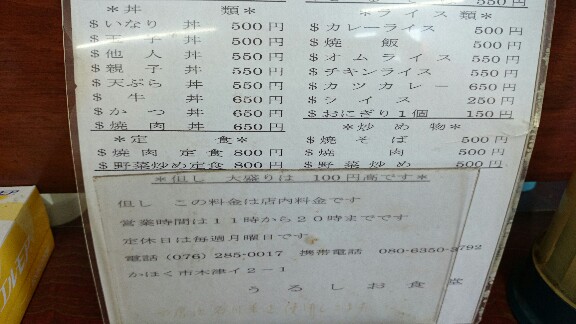 550円
550円
＊丼　類＊
＄いなり丼 500円
＄玉子丼 500円
＄他人丼 550円
＄親子丼 550円
＄天ぷら丼 550円
＄牛丼 650円
＄かつ丼 650円
＄焼肉丼 650円
＊定　食＊
＄焼肉定食 800円
＄野菜炒め定食 800円
＊ライス類＊
＄カレーライス 500円
＄焼飯 500円
＄オムライス 550円
＄チキンライス 550円
＄カツカレー 650円
＄ライス 250円
＄おにぎり1個 150円
＊炒め物＊
＄焼そば 500円
＄焼肉 500円
＄野菜炒め 500円
＊但し 大盛りは 100円高です＊
但し この料金は店内料金です
営業時間は11時から20時までです
定休日は毎週月曜日です
電話 (076) 285-0017 携帯電話 080-6350-3792
かほく市木津イ2-1
うるしお食堂